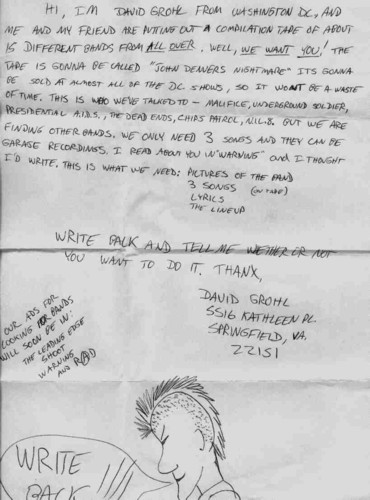 HI, I'M DAVID GROHL FROM WASHINGTON DC, AND
ME AND MY FRIEND ARE PUTING OUT A COMPILATION TAPE OF ABOUT
15 DIFFERENT BANDS FROM ALL OVER. WELL, WE WANT YOU! THE
TAPE IS GONNA BE CALLED "JOHN DENVERS NIGHTMARE" ITS GONNA
BE SOLD AT ALMOST ALL OF THE DC SHOWS, SO IT WONT BE A WASTE
OF TIME. THIS IS WHO WE'VE TALKED TO - MALIFICE, UNDERGROUND SOLDIER,
PRESIDENTIAL A.I.D.S., THE DEAD ENDS, CHIPS PATROL, N.I.L.8. BUT WE ARE
FINDING OTHER BANDS. WE ONLY NEED 3 SONGS AND THEY CAN BE
GARAGE RECORDINGS. I READ ABOUT YOU IN "WARNING" and I THOUGHT
I'D WRITE. THIS IS WHAT WE NEED: PICTURES OF THE BAND
3 SONGS (on tape)
LYRICS
THE LINEUP
WRITE BACK AND TELL ME WETHER OR NOT
YOU WANT TO DO IT. THANX,
DAVID GROHL
5516 KATHLEEN PL.
SPRINGFIELD, VA.
22151
OUR ADS FOR
LOOKING FOR BANDS
WILL SOON BE IN:
THE LEADING EDGE
SHOOT
WARNING
AND RAD
WRITE
BACK!!!